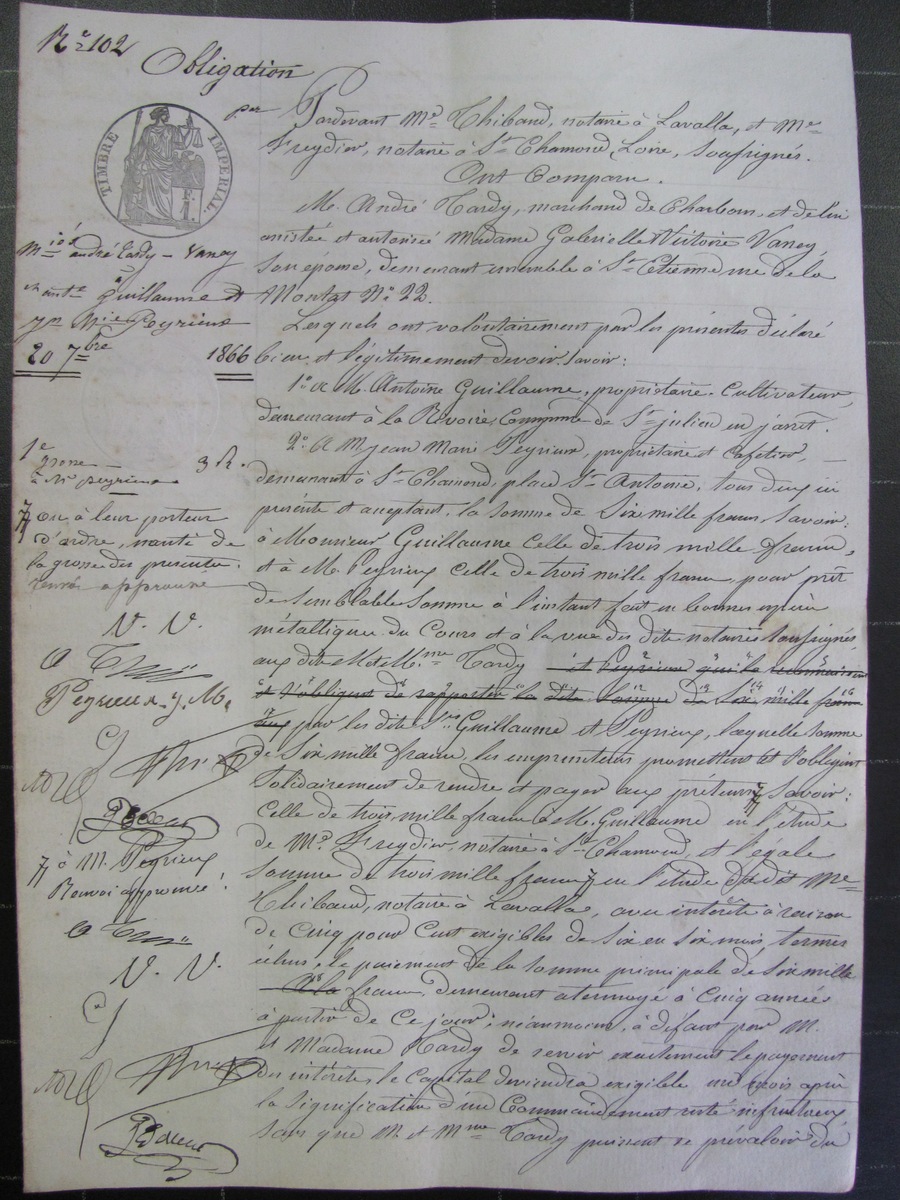 N° 102
Obligation
TIMBRE IMPÉRIAL
par
Pardevant Me Thibaud, notaire à Lavalla, et Me
Freydier, notaire à St Chamond, Loire, soussignés.
Ont Comparu.
M. André Tardy, marchand de Charbons, et de lui
assistée et autorisée Madame Gabrielle Victoire Vaney
son épouse, demeurant ensemble à St Etienne rue de la
Montat No 22.
Lesquels ont volontairement par les présentes déclaré
bien et légitimement devoir savoir:
1° à M. Antoine Guillaume, propriétaire Cultivateur,
demeurant à la Revoire, Commune de St julien en jarret.
2° à M. jean Marie Peyrieux, propriétaire et cafetier,
demeurant à St Chamond, place St Antoine; tous deux ici
présents et acceptant, la somme de Six mille francs, savoir:
à Monsieur Guillaume celle de trois mille francs,
et à M. Peyrieux celle de trois mille francs, pour prêt
de semblable somme à l'instant fait en bonnes espèces
métallique du Cours et à la vue des dits notaires soussignés
aux dits M et Mme Tardy et Peyrieux qui le reconnaissent
et s'obligent de rapporter la dite somme de six mille francs
par les dits Srs Guillaume et Peyrieux, laquelle somme
de Six mille francs, les emprunteurs promettent et s'obligent
Solidairement de rendre et payer aux prêteurs savoir:
Celle de trois mille francs à M. Guillaume en l'étude
de Me Freydier, notaire à St Chamond, et l'égale
somme de trois mille francs en l'étude du dit Me
Thibaud, notaire à Lavalla, avec intérêts à raison
de Cinq pour Cent exigibles de Six en Six mois termes
échus; le paiement de la somme principale de Six mille
francs, demeurant atermoyé à Cinq années
à partir de Ce jour; néanmoins, à défaut pour M.
et Madame Tardy de servir exactement le payement
des intérêts, le Capital deviendra exigible un mois après
la signification d'un Commandement resté infructueux
sans que M. et Mme Tardy puissent se prévaloir du
Miés andré tardy - Vaney
Guillaume &
jn Mie Peyrieux
20 7bre 1866
1e
grosse
à Mr peyrieux
3 R.
ou à leur porteur
d'ordre, nanti de
la grosse des présentes.
renvoi approuvé
V. V.
Peyrieux j. M.
à M. Peyrieux
Renvoi approuvé!
V. V.